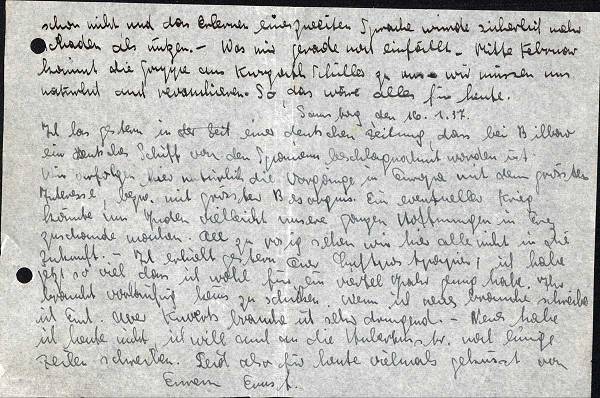 schon nicht und das Erlernen einer zweiten Sprache würde sicherlich mehr
schaden als nützen. – Was mir gerade noch einfällt. – Mitte Februar
kommt die Gruppe aus zu uns – wir müssen uns
natürlich auch . So, das wäre alles für heute.
den 16.1.37.
Ich las gestern in der Zeit einer deutschen Zeitung, dass bei Bilbao
ein deutsches Schiff von den Spaniern beschlagnahmt worden ist.
Wir verfolgen hier natürlich die Vorgänge in Europa mit dem grössten
Interesse, bezw. mit grösster Besorgnis. Ein eventueller Krieg
könnte uns Juden vielleicht unsere ganzen Hoffnungen in Erez
zuschande machen. All zu rosig sehen wir hier alle nicht in die
Zukunft. – Ich erhielt gestern Euer Luftpostpapier; ich habe
jetzt so viel dass ich wohl für ein viertel Jahr genug habe. Ihr
braucht vorläufig keins zu schicken. Wenn ich neues brauche schreibe
ich Euch. Aber Kuverts brauche ich sehr dringend. – Neues habe
ich heute nicht, ich will auch an die str. noch einige
Zeilen schreiben. Seid also für heute vielmals geküsst von
Eurem Ernst.